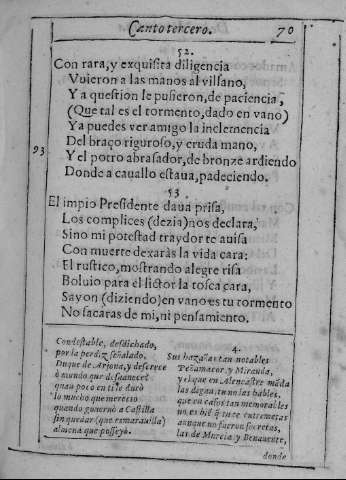 Canto tercero. 70
52.
Con rara, y exquisita diligencia
Vuieron a las manos al villano,
Y a question le pusieron, de paciencia,
(Que tal es el tormento, dado en vano)
Ya puedes ver amigo la inclemencia
Del braço riguroso, y cruda mano,
93 Y el potro abrasador, de bronze ardiendo
Donde a cauallo estaua, padeciendo.
53.
El impio Presidente daua prisa,
Los complices (dezia) nos declara,
Sino mi potestad traydor te auisa
Con muerte dexaràs la vida cara:
El rustico, mostrando alegre risa
Boluio para el lictor la tosca cara,
Sayon (diziendo) en vano es tu tormento
No sacaras de mi, ni pensamiento.
Condestable, desdichado,
por la perdiz señalado,
Duque de Arjona, y descrece
ò mundo que desuanece
quan poco en ti le durò
lo mucho que merecio
quando gouernò a Castilla
sin quedar (que es marauilla)
almena que posseyò.
4.
Sus hazañas tan notables
Peñamacor, y Miranda,
y el que en Alencastre mãda
las digan, tu no las hables,
que en casos tan memorables
aunque no fueron secretas,
las de Murcia, y Benauente,
donde